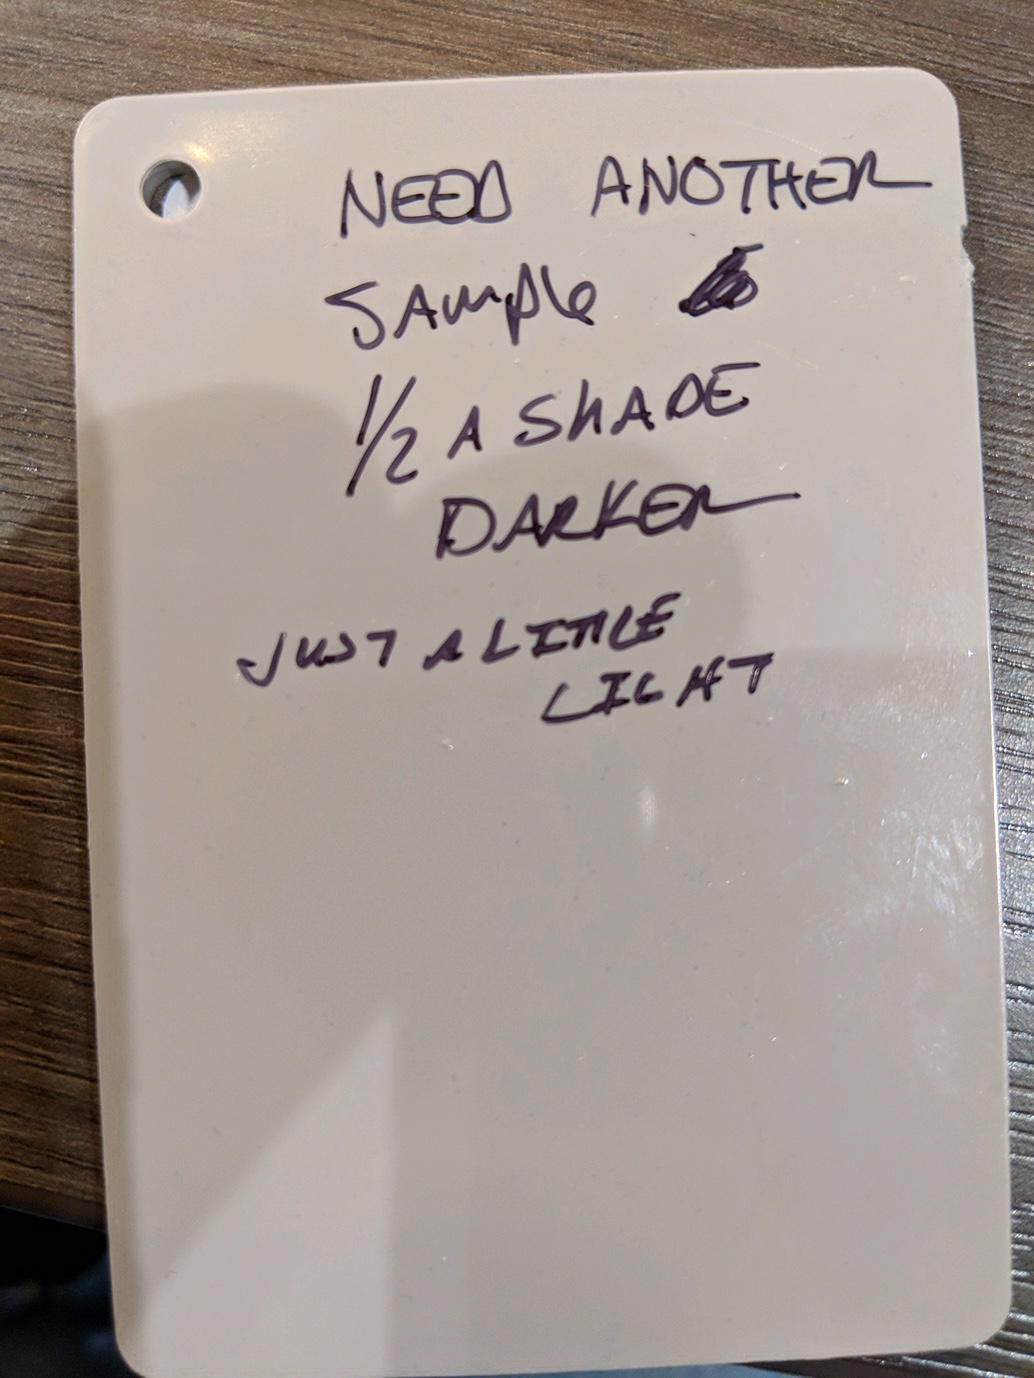 NEED ANOTHER
SAmple
1/2 A SHADE
DARKER
JUST A LITTLE
LIGHT